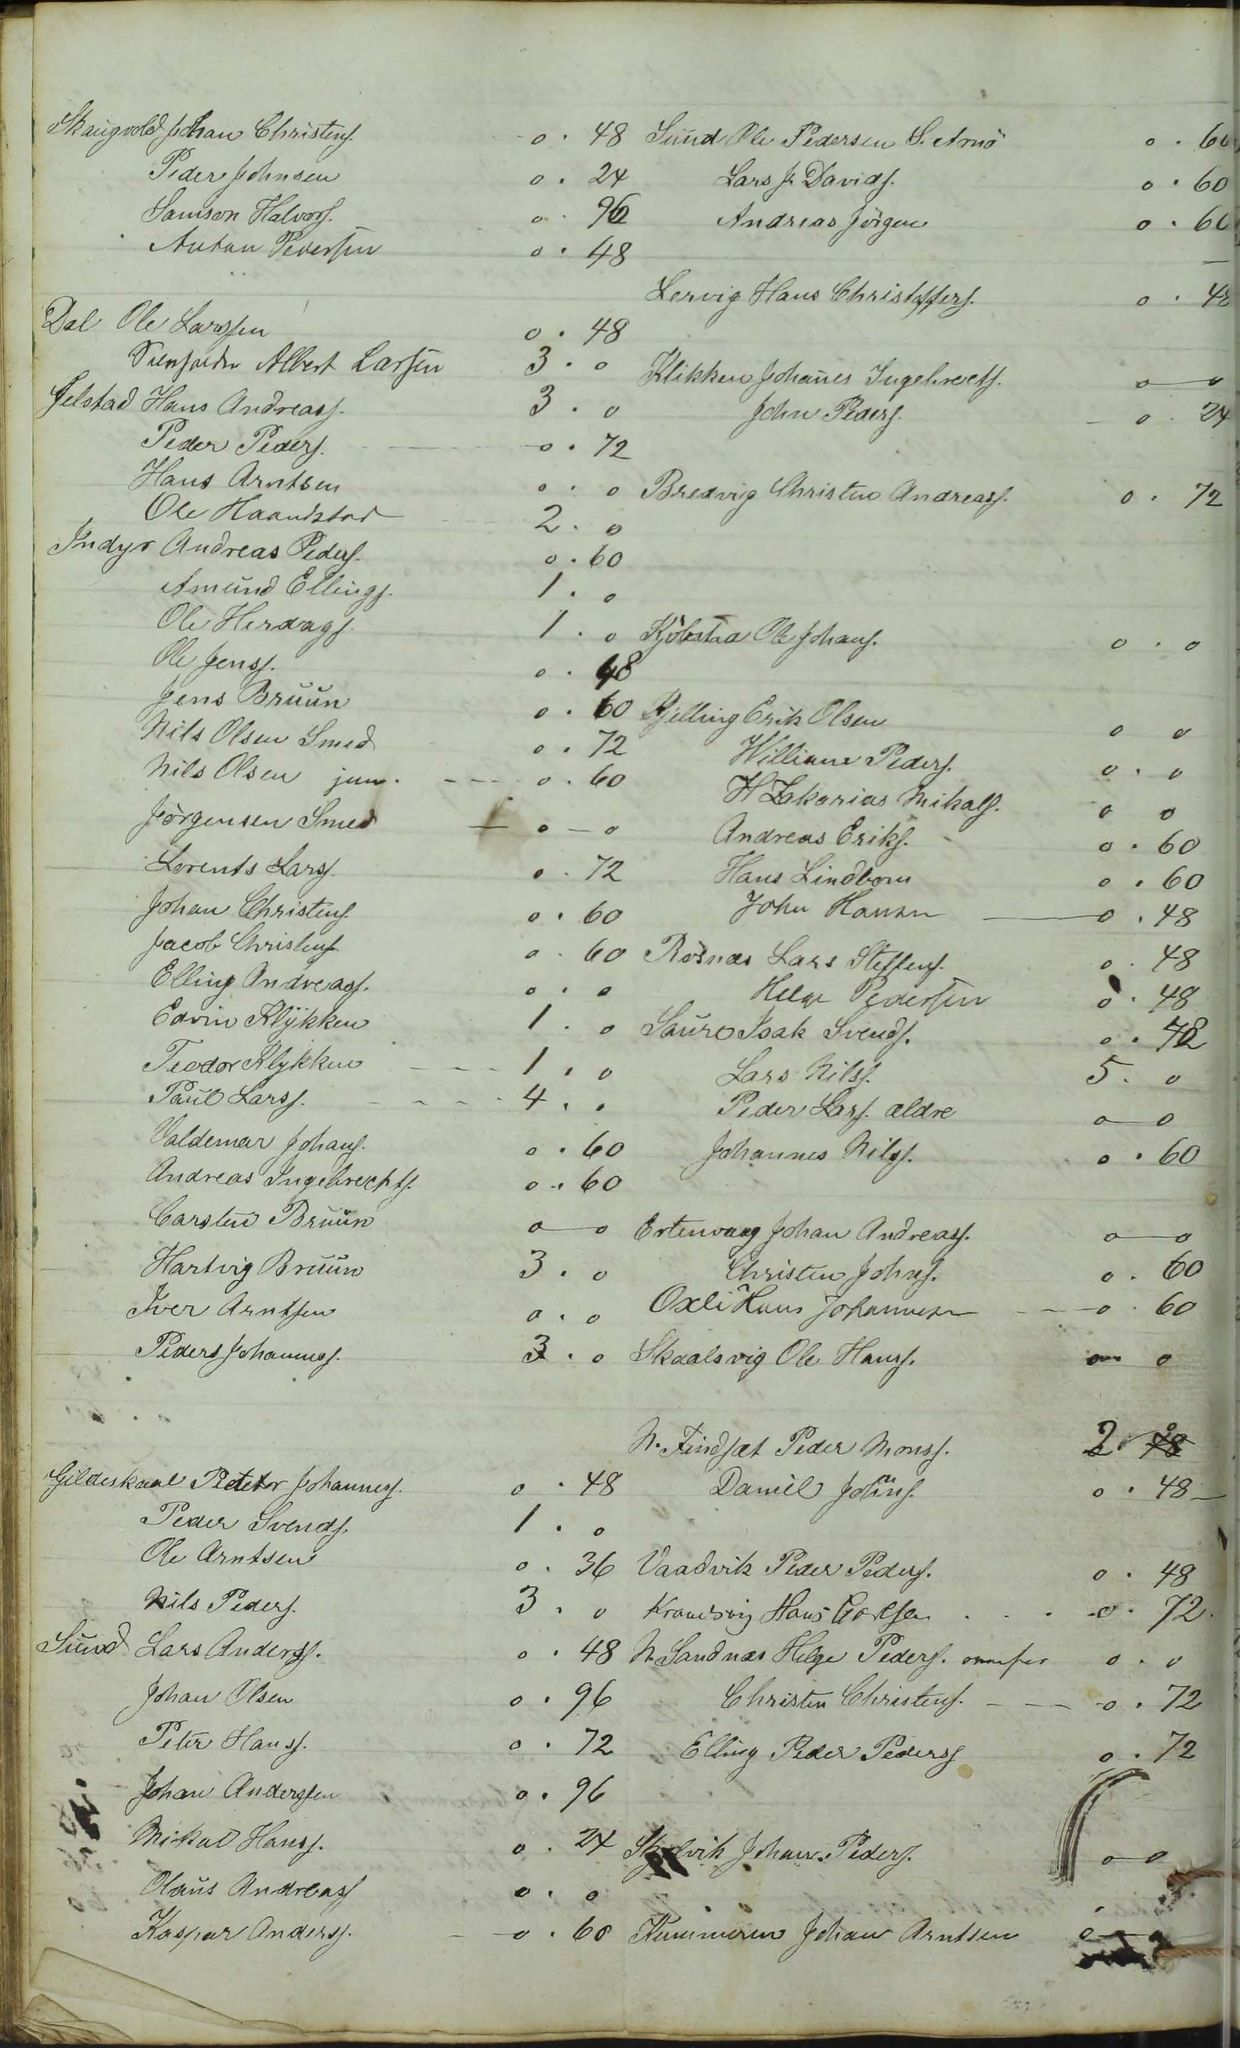 Skaugvold Johan Christens. o . 48
Peder Johnsen o . 24
Samson Halvors. o . 96
Anton Pedersen o . 48
Dal Ole Larssen o . 48
Albert Larsen 3 . o
Felstad Hans Andreass. 3 . o
Peder Peders. o . 72
Hans Arntsen o . o
Ole Haandstad 2 . o
Indyr Andreas Peders. o . 60
Amund Ellings. 1 . o
Ole Herdags. 1 . o
Ole Jenss. o . 48
Jens Bruun o . 60
Nils Olsen Smed o . 72
Nils Olsen jun. o . 60
Jörgensen Smed o – o
Lorents Lars. o . 72
Johan Christens. o . 60
Jacob Christens. o . 60
Elling Andreas. o . o
Edvin Klykken 1 . o
Teodor Klykken 1 . o
Paul Larss. 4 . o
Valdemar Johans. o . 60
Andreas Ingebrechts. o . 60
Carsten Bruun o – o
Hartvig Bruun 3 . o
Iver Arntsen o . o
Peder Johannes. 3 . o
Gildeskaal Petter Johanness. o . 48
Peder Svends. 1 . o
Ole Arntsen o . 36
Nils Peders. 3 . o
Sund Lars Anderss. o . 48
Johan Olsen o . 96
Peter Hanss. o . 72
Johan Anderssen o . 96
Mikal Hanss. o . 24
Olaus Andreass o . o
Kaspar Anderss. o . 60
Sund Ole Pedersen S. Arnö o . 60
Lars J. Davids. o . 60
Andreas Jörgen o . 60
Lervig Hans Christoffers. o . 48
Klikken Johanes Ingebrects. o – o
John Peders. o . 24
Bredvig Christen Andreass. o . 72
Kjölstad Ole Johans. o . o
Kjelling Erik Olsen o o
Williame Peders. o . o
H Zakarias Mikals. o o
Andreas Eriks. o . 60
Hans Lindbom o . 60
John Hansen o . 48
Rösnæs Lars Steffens. o . 48
Helge Pedersen o . 48
Saura Isak Svends. o . 72
Lars Nilss. 5 . o
Peder Lars. ældre o – o
Johannes Nilss. o . 60
Ertenvaag Johan Andreass. o – o
Christen Johns. o . 60
Oxli Hans Johannesen o . 60
Skaalsvig Ole Hanss. o o
N. Findsæt Peder Monss. 2 . o
Daniel Johns. o . 48
Vaadvik Peder Peders. o . 48
Hans o . 72
N. Sandnæs Helge Peders. o . o
Christen Christens. o . 72
Elling Peder Pederss o . 72
Johan Peders. o – o
Johan Arntsen o